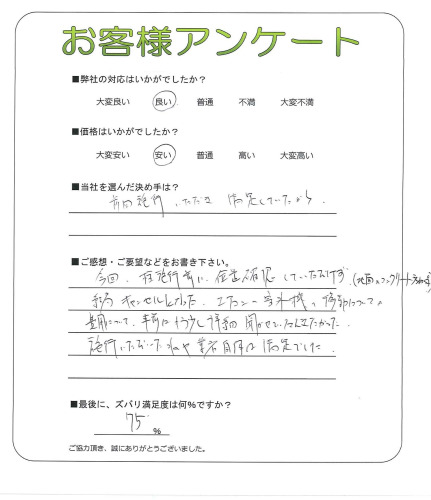 お客様アンケート
■弊社の対応はいかがでしたか?
大変良い 良い 普通 不満 大変不満
■価格はいかがでしたか?
大変安い 安い 普通 高い 大変高い
■当社を選んだ決め手は?
前回施行いただき 満足していたから。
■ご感想・ご要望などをお書き下さい。
今回、施行前に 確認していただけず (地面がコンクリート
キャンセルになった。エアコン室外機の移動について
費用について、事前にもう少し詳細 聞かせていただきたかった
施行いただいた 業者自体は満足でした。
■最後に、ズバリ満足度は何%ですか?
75 %
ご協力頂き、誠にありがとうございました。